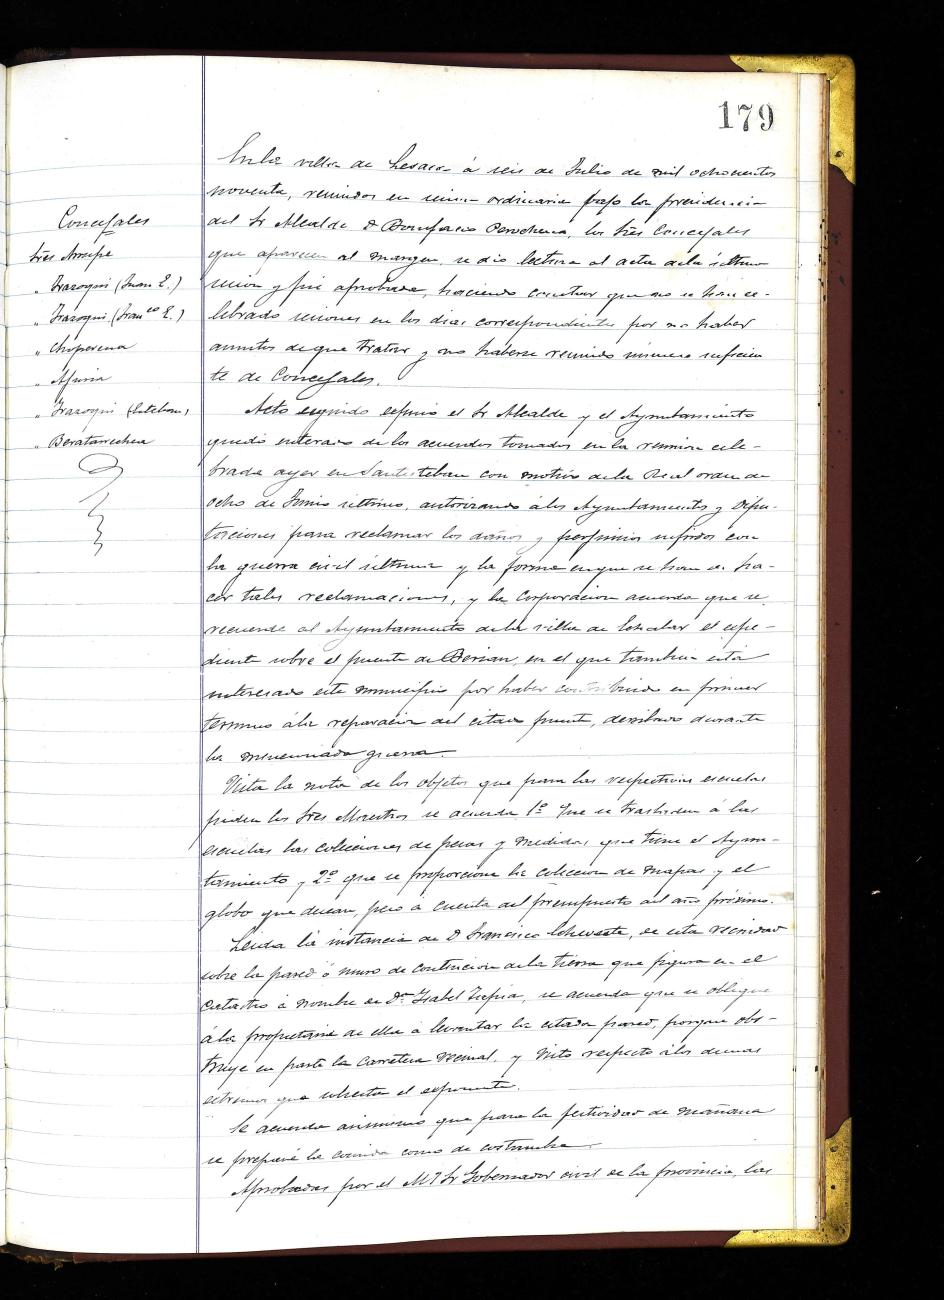 179
Concejales
Sres Arreipe
" Irazoqui (Juan E.)
" Irazoqui (Franco E.)
" Choperena
" Apiria
" Irazoqui (Esteban)
" Beratarrechea
En la villa de Lesaca á seis de Julio de mil ochocientos
noventa, reunidos en sesion ordinaria bajo la presidencia
del Sr Alcalde D Bonifacio Perochena, los Sres Concejales
que aparecen al margen, se dio lectura al acta de la última
sesion y fué aprobada, haciendo constar que no se han ce-
lebrado sesiones en los dias correspondientes por no haber
asuntos de que tratar y no haberse reunido número suficien
te de Concejales.
Acto seguido espuso el Sr Alcalde y el Ayuntamiento
quedó enterado de los acuerdos tomados en la reunion cele-
brada ayer en Santesteban con motivo de la Real orden de
ocho de Junio último, autorizando á los Ayuntamientos y Dipu-
taciones para reclamar los daños y perjuicios sufridos con
la guerra civil última y la forma en que se han de ha-
cer tales reclamaciones, y la Corporacion acuerda que se
recuerde al Ayuntamiento de la villa de Echalar el espe-
diente sobre el puente de Berian, en el que tambien está
interesado este municipio por haber contribuido en primer
termino á la reparacion del citado puente, derribado durante
la mencionada guerra.
Vista la nota de los objetos que para las respectivas escuelas
piden los Sres Maestros se acuerda 1º que se trasladen á las
escuelas las colecciones de pesas y medidas que tiene el Ayun-
tamiento y 2º que se proporcione la coleccion de mapas y el
globo que desean, pero á cuenta del presupuesto del año próximo.
Leida la instancia de D Francisco Echeveste, de esta vecindad
sobre la pared ó muro de contencion de la tierra que figura en el
catastro á nombre de Dª Isabel Tapia, se acuerda que se obligue
á la propietaria de ella á levantar la citada pared, porque obs-
truye en parte la carretera vecinal, y Visto respecto á los demas
estremos que solicita el esponente.
Se acuerda asimismo que para la festividad de mañana
se prepare la comida como de costumbre.
Aprobadas por el M I Sr Gobernador civil de la provincia, las